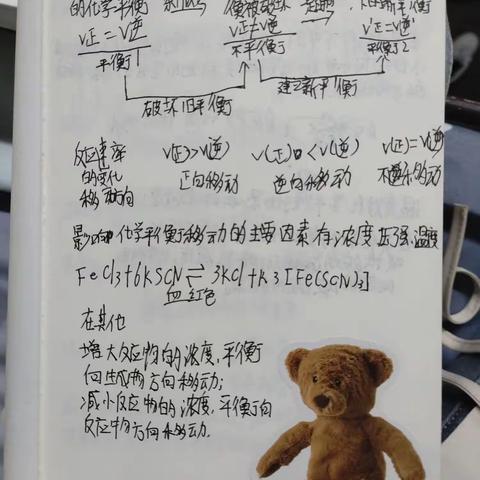 的化学平衡
V正=V逆 V正≠V逆 V正=V逆
平衡1 不平衡 平衡2
破坏旧平衡 建立新平衡
反应速率的变化 V(正)>V(逆) V(正)<V(逆) V(正)=V(逆)
移动方向 正向移动 逆向移动 不移动
影响化学平衡移动的主要因素有浓度 压强.温度
FeCl3+6KSCN⇌3KCl+K3[Fe(SCN)3]
血红色
在其他
增大反应物的浓度,平衡
向生成物方向移动;
减小反应物的浓度,平衡向
反应物方向移动.